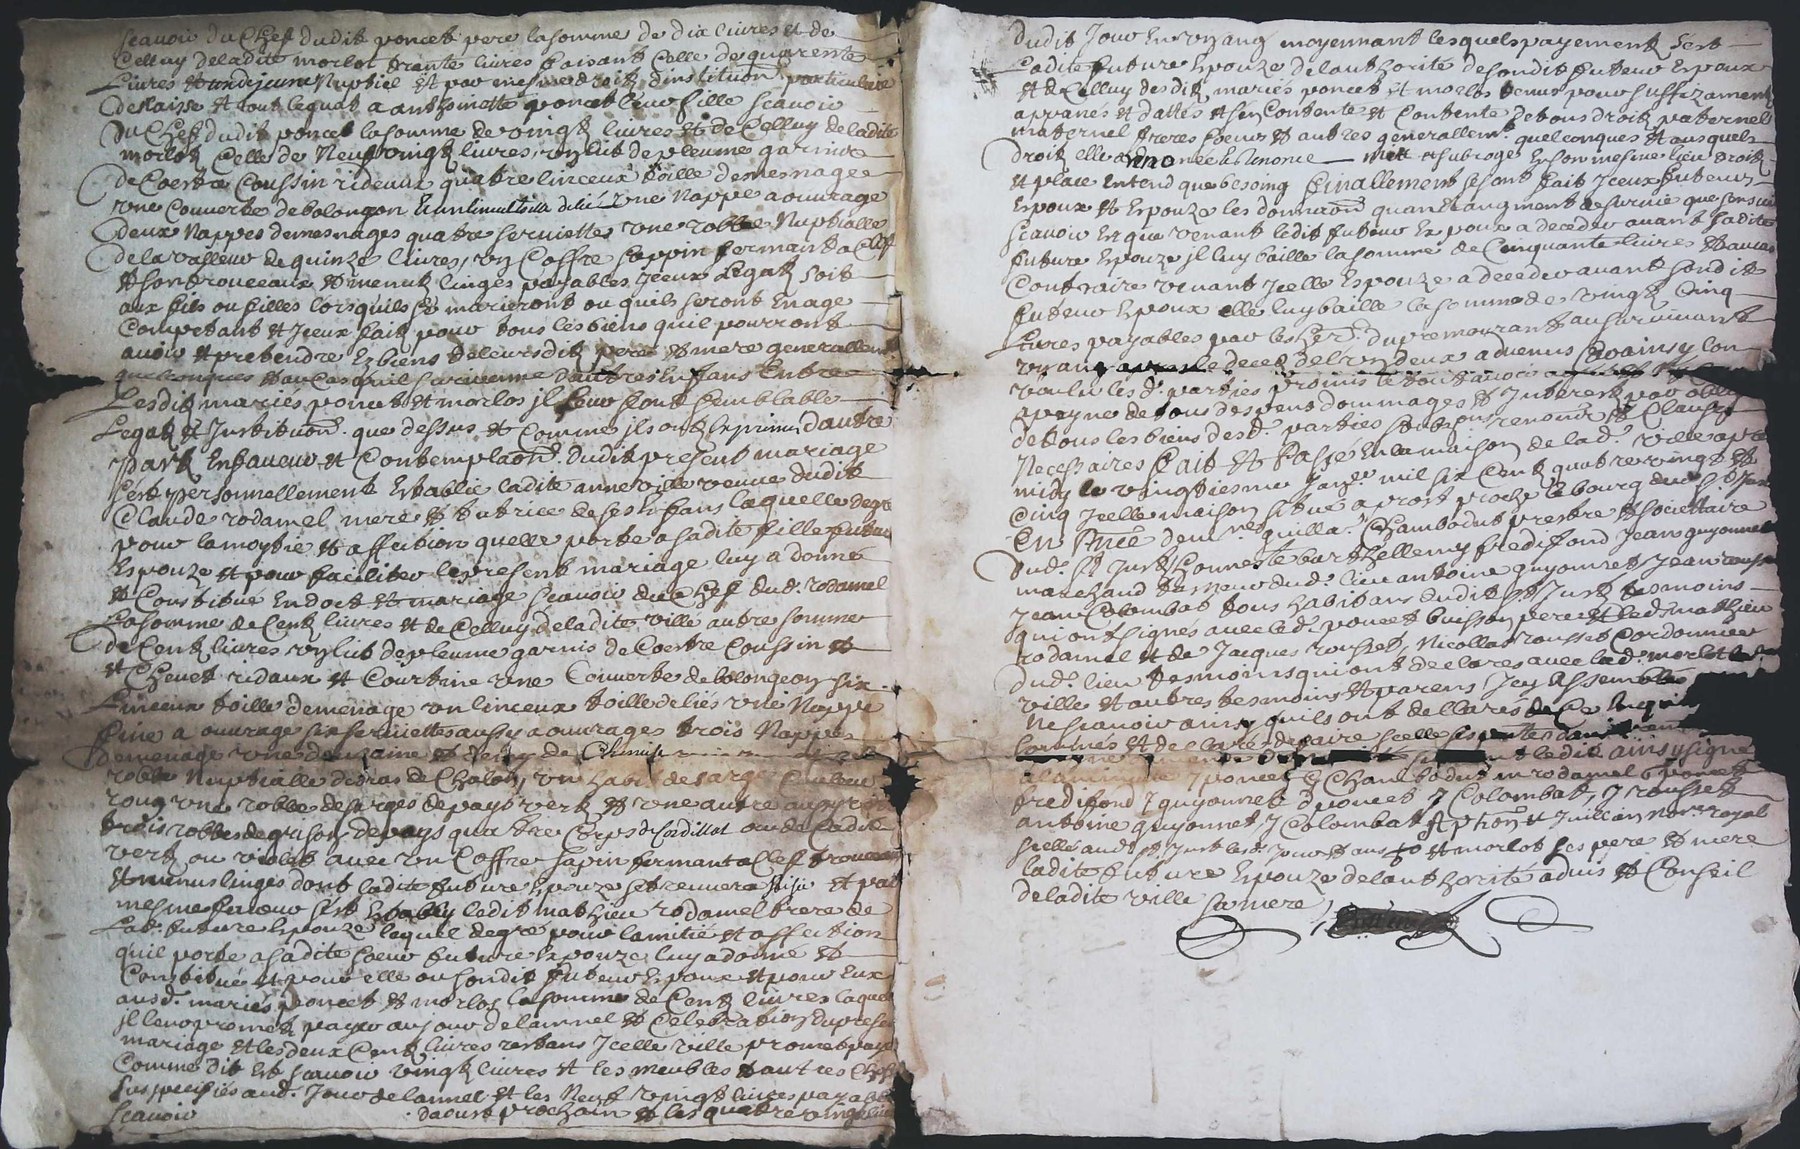 scauoir du Chef dudit poncet pere la somme de dix liures et de
Celluy de ladite morlot trante liures faisant Celle de quarente
Liures et Nuptiel Et par mesme droit dinstitution particuliere
delaisse et a anthoinette poncet leur fille scauoir
Du Chef dudit poncet la somme de vingt liures et de Celluy de ladite
morlot Celle de Neuf vingt liures vn lict de pleume garnie
de Coettre Coussin rideaux quatre linceux toille de mesnage
vne Couuerte de bolongon vne Nappe a ouurage
deux Nappes de mesnages quatre seruiettes vne robbe Nuptialle
de la valleur de quinze liures, vn Coffre sappin fermant a Clef
et son trouceaux et menut linges payables iceux Legatz soit
aux fils ou filles lors quils se marieront ou quils seront En age
Competant et Iceux fait pour tous les biens quil pourront
auoir et pretendre Es biens de leursdit pere et mere generallem
quelconques et au Cas quil suruienne dautres Enfans Entre
Lesdit mariés poncet et morlos jl leur font semblable
Legatz et Institution que dessus et Comme ils ont Dautre
Part Enfaueur et Contemplaon dudit present mariage
sest personnellement Establie ladite anne ville veuue dudit
Claude rodamel mere et tutrice de ses Enfans laquelle degre
pour lamoytie et affection quelle porte a sadite fille future
Espouze et pour faciliter le present mariage luy a donné
et Constitué En doct et mariage scauoir du Chef dud. rodamel
La somme de Cent liures et de Celluy de ladite ville autre somme
de Cent liures vn lict de pleume garnis de Coettre Coussin et
et Cheuet ridaux et Courtine vne Couuerte de bolongeon six
Linceux toille de menage vn linceux toille deliés vne Nappe
fine a ouurage six seruiettes aussy a ouurages trois Nappes
de menage vne douzaine et demy de Chemise
robbe Nuptialle de ras de Chalon, vn habit de sarge Couleur
rouge vne robbe de sarges de pays vert et vne autre
trois robbes de grison de pays quatre Corps de Cordillat ou de Cadis
vert ou violet auec vn Coffre sapin fermant a Clef trouceau
et menus linges dont ladite future Espouze se treuuera saisie et par
mesme faueur sest Estably ledit mathieu rodamel frere de
Lad. future Espouze lequel degre pour lamitié et affection
quil porte a sadite soeur future Espouze luy a donné et
Constitué et pour elle ou sondit futeur Espoux et pour Eux
ausd. mariés poncet et morlos la somme de Cent liures laquelle
jl leur promet payer au jour de lannel et Celebration du presen
mariage et les deux Cent liures restans Icelle ville promet payer
Comme dit Est scauoir vingt liures et les meubles et autres choses
suspecifiés aud. Jour de lannel et les Neuf vingt liures payable
scauoir daoust prochain et les quatre vingt
dudit Jour En vn ang moyennant lesquels payement sest
Ladite future Espouze de lauthorité de sondit futeur Espoux
et de Celluy desdit mariés poncet et morlos tenue pour suffizament
appanés et dattés et sen Contente et Contente de tous droit paternel
maternel freres soeurs et autres generallem quelconques et ausquels
droit elle a renoncé et renonce met et subroge En son mesme lieu droit
et place Entend que besoing finallement se sont fait Iceux futeurs
Espoux et Espouze les donnaon quant augment de suruie que sensuit
scauoir Est que venant ledit futeur Espoux a deceder auant sadite
future Espouze jl luy baille la somme de Cinquante liures et au cas
Contraire venant Icelle Espouze a deceder auant sondit
futeur Espoux elle luy baille la somme de vingt Cinq
Liures payables par les her. du premourant au suruiuant
vn ang apres le deces de lvn deux aduenus Car ainsy lon
voulu les d. parties promis le tout auoir
a peyne de tous despens dommages et Interest par oblig
de tous les biens desd. parties renon et Clauses
Necessaires fait et Passé En la maison de lad. ville apres
midy le vingtiesme mil six Cent quatre vingt et
Cinq Icelle maison situé proche le bourg dud. St Just
En Chambodut prestre et Societtaire
dud. St Just honneste barthellemy fredifond Jean guyonnet
marchand dud. lieu antoine guyonnet Jean rousset
Jean Colombat tous habitans dudit St Just tesmoins
qui ont signés auec led. poncet buisson pere et led. mathieu
rodamel et de Jacques rousset, Nicollas rousset Cordonnier
dud. lieu tesmoins qui ont declares auec lad. morlot
ville et autres tesmoins et parens Icy assemblés
Ne scauoir ainsy quils ont dellarés de Ce Enquis
sommés et declaré de faire scelle
ledit ainsy signé
a la minutte J poncet, C Chambodut m rodamel b poncet
fredifond J guyonnet d poncet J Colombat, J rousset
antoine guyonnet, J Colombat et Juillian no.re royal
scellé aud. St Just lesd. jour et ans et morlot ses pere et mere
ladite future Espouze de lauthorité aduis et Conseil
de ladite ville sa mere